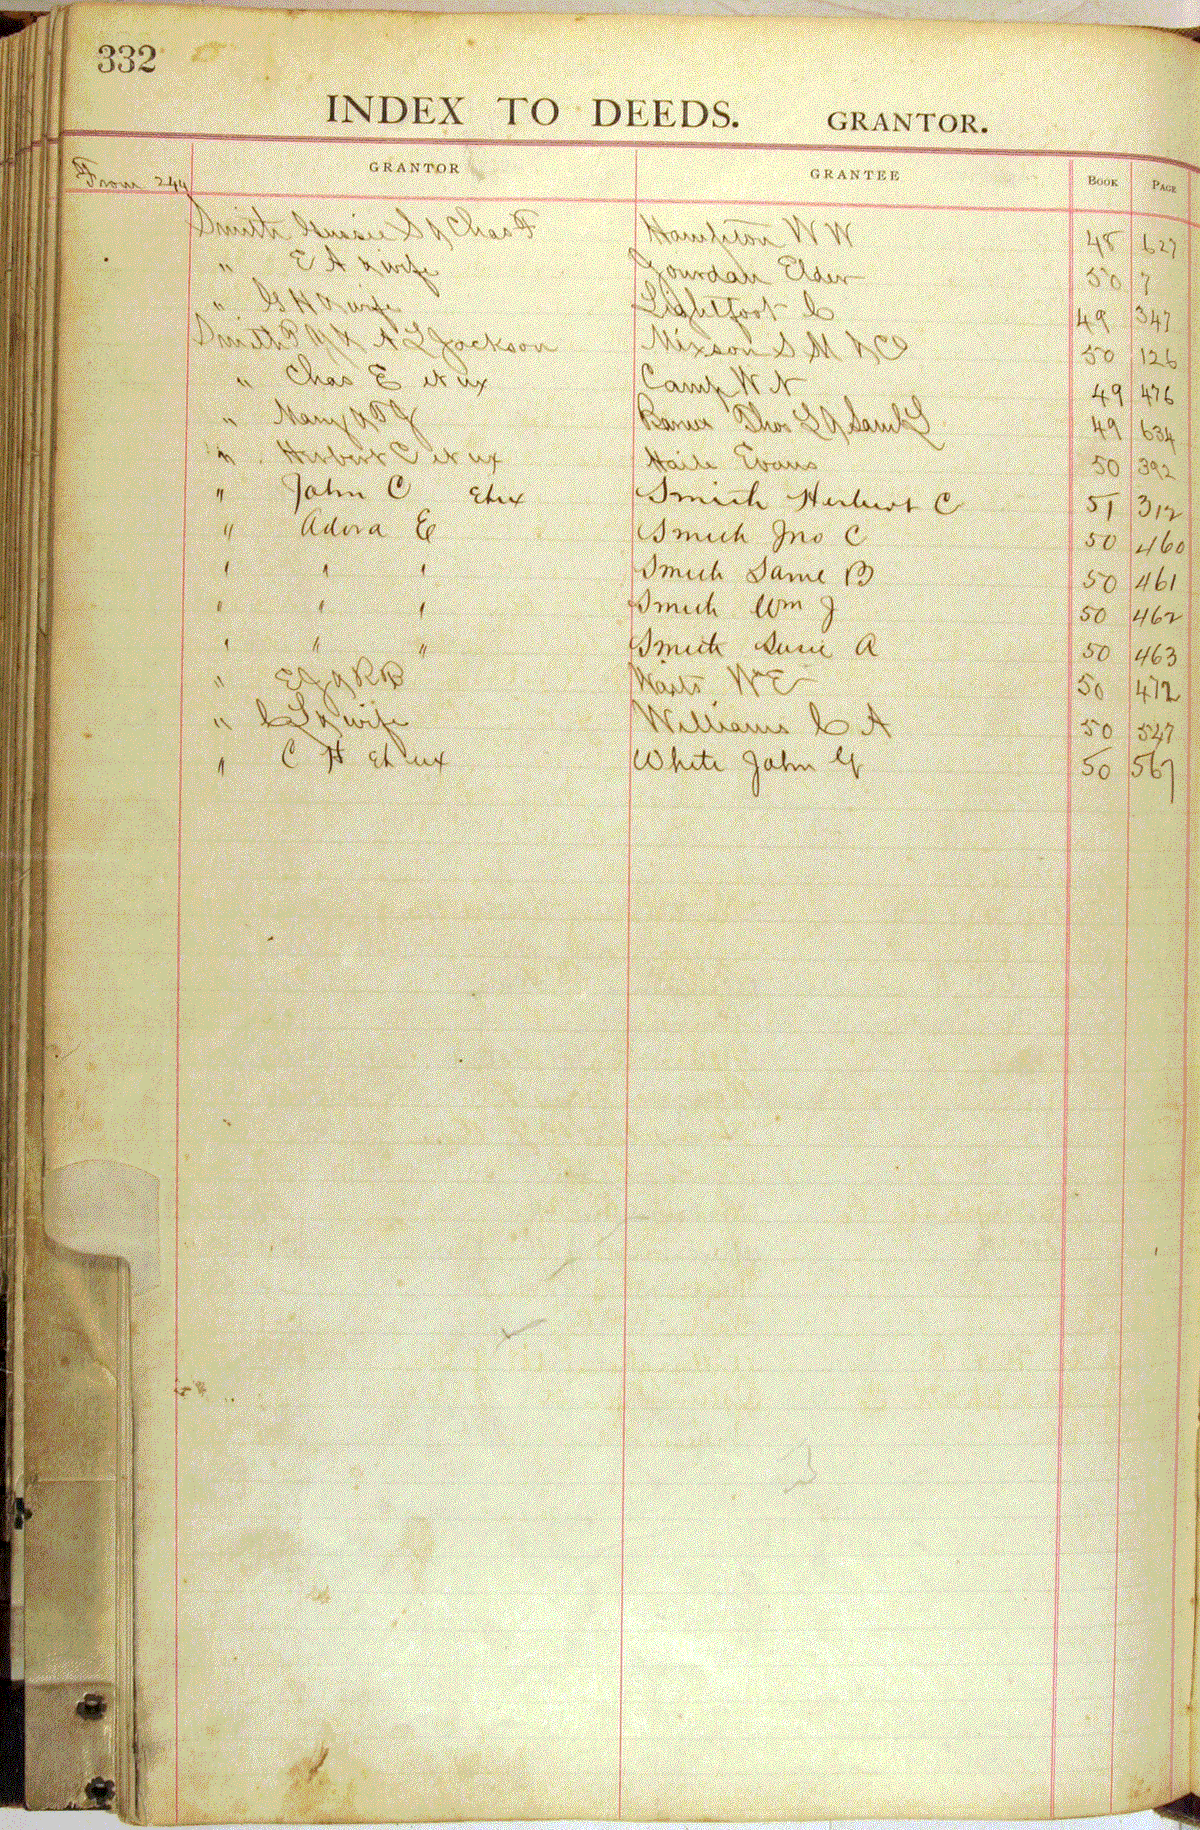 332
INDEX TO DEEDS. GRANTOR.
From 244 GRANTOR GRANTEE BOOK PAGE
Smith Gussie S & Chas F Hampton W W 48 627
" E A & wife Jourdan Elder 50 7
" G H & wife Lightfoot C 49 347
Smith & A L Jackson Mixson S M & Co 50 126
" Chas E et ux Camp W N 49 476
" Mary & D J Thos L & Saml L 49 634
" Herbert C et ux Haile Evans 50 392
" John C et ux Smith Herbert C 51 312
" Adora E Smith Jno C 50 460
" " " Smith B 50 461
" " " Smith Wm J 50 462
" " " Smith Susie A 50 463
" E J & R B Waits W E 50 472
" C L & wife Williams C A 50 527
" C H et ux White John G 50 567